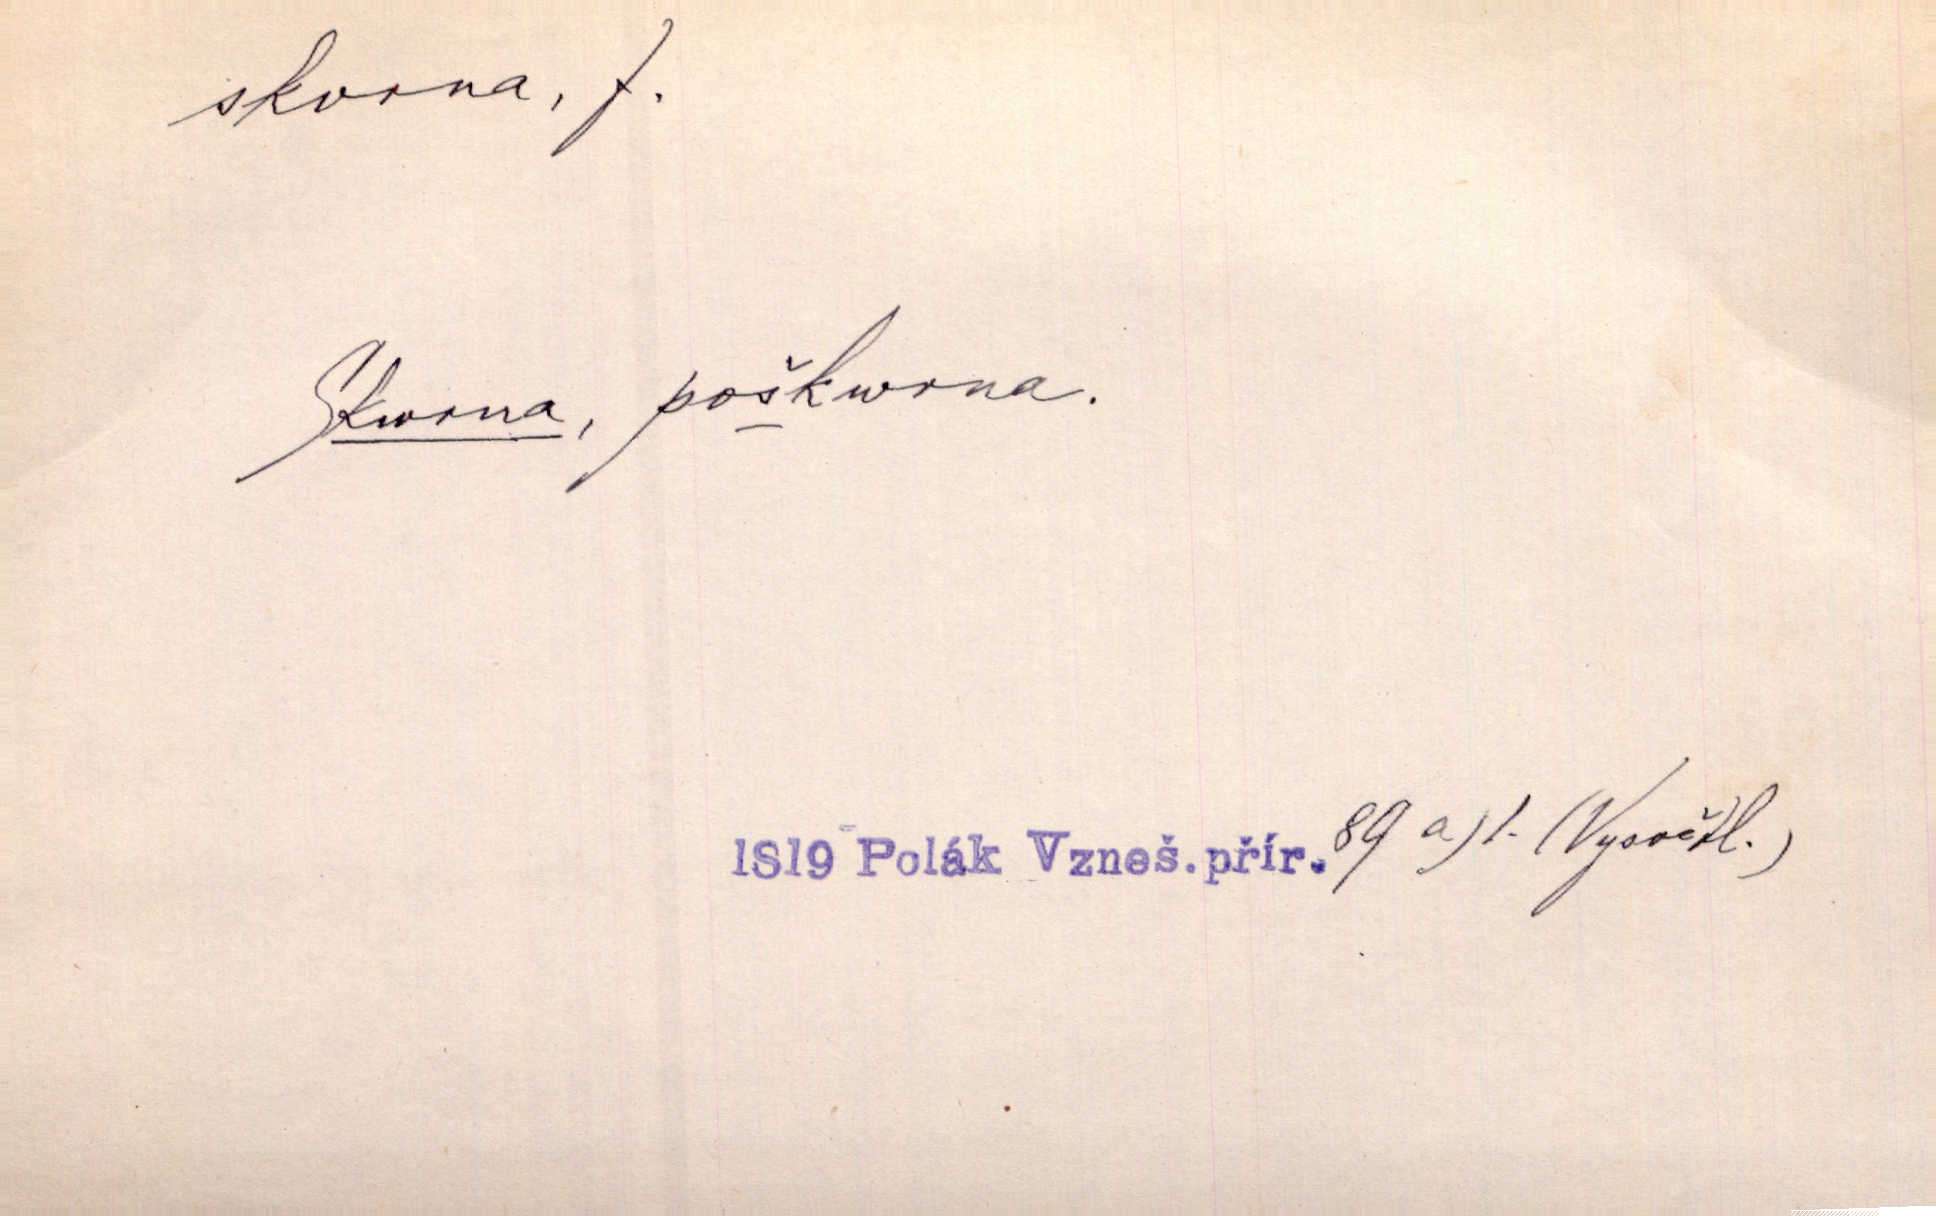 skvrna, f.
Skwrna, poškwrna.
1819 Polák Vzneš.přír. 89 a) 1. (Vysvětl.)